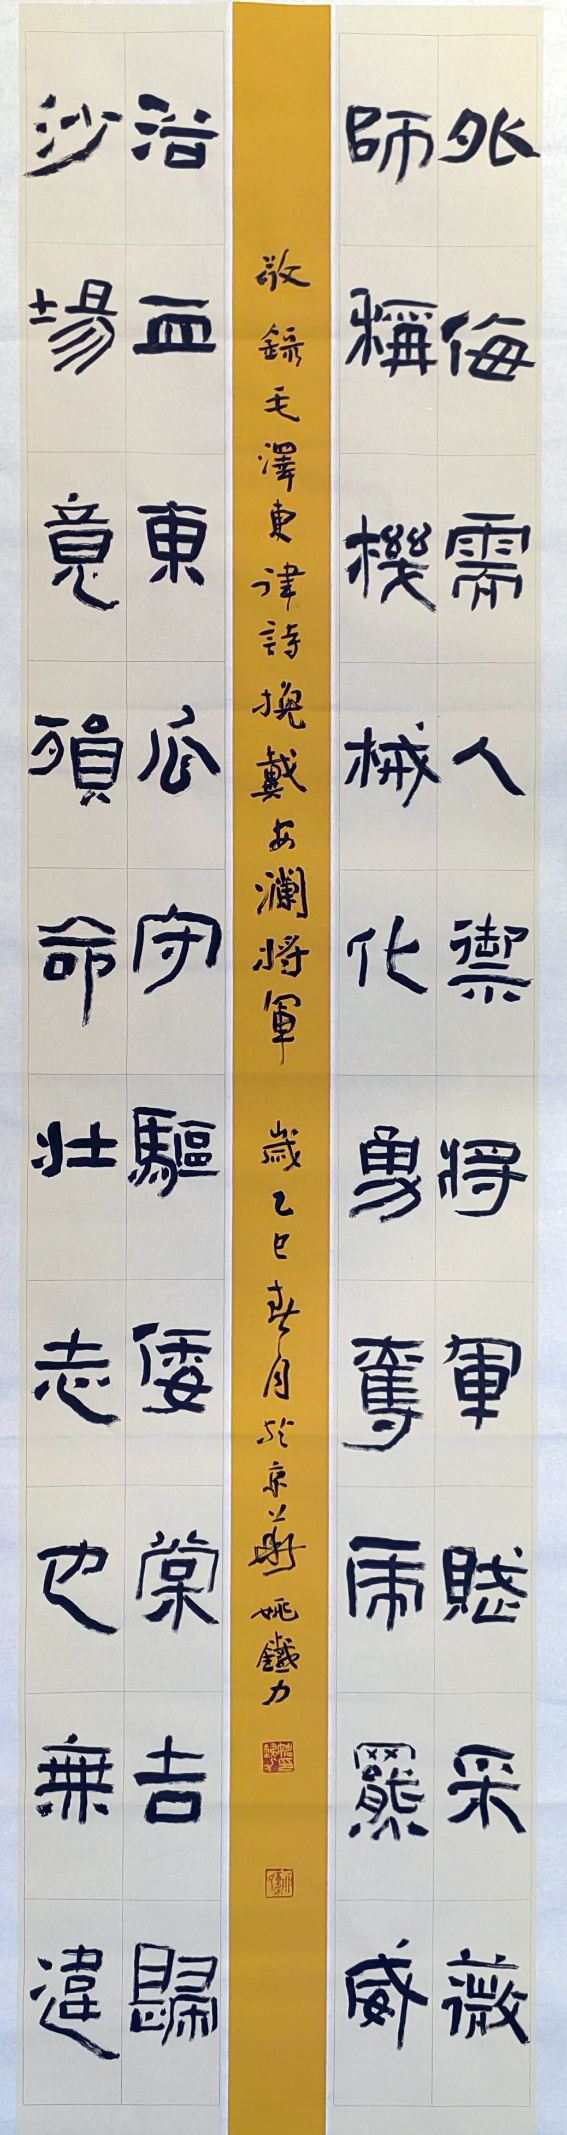 外侮需人禦將軍賦采薇
師稱機械化勇奪虎羆威
浴血東瓜守驅倭棠吉歸
沙場竟殞命壯志也無違
敬錄毛澤東律詩挽戴安瀾將軍 歲乙巳春月於京 姚鐵力